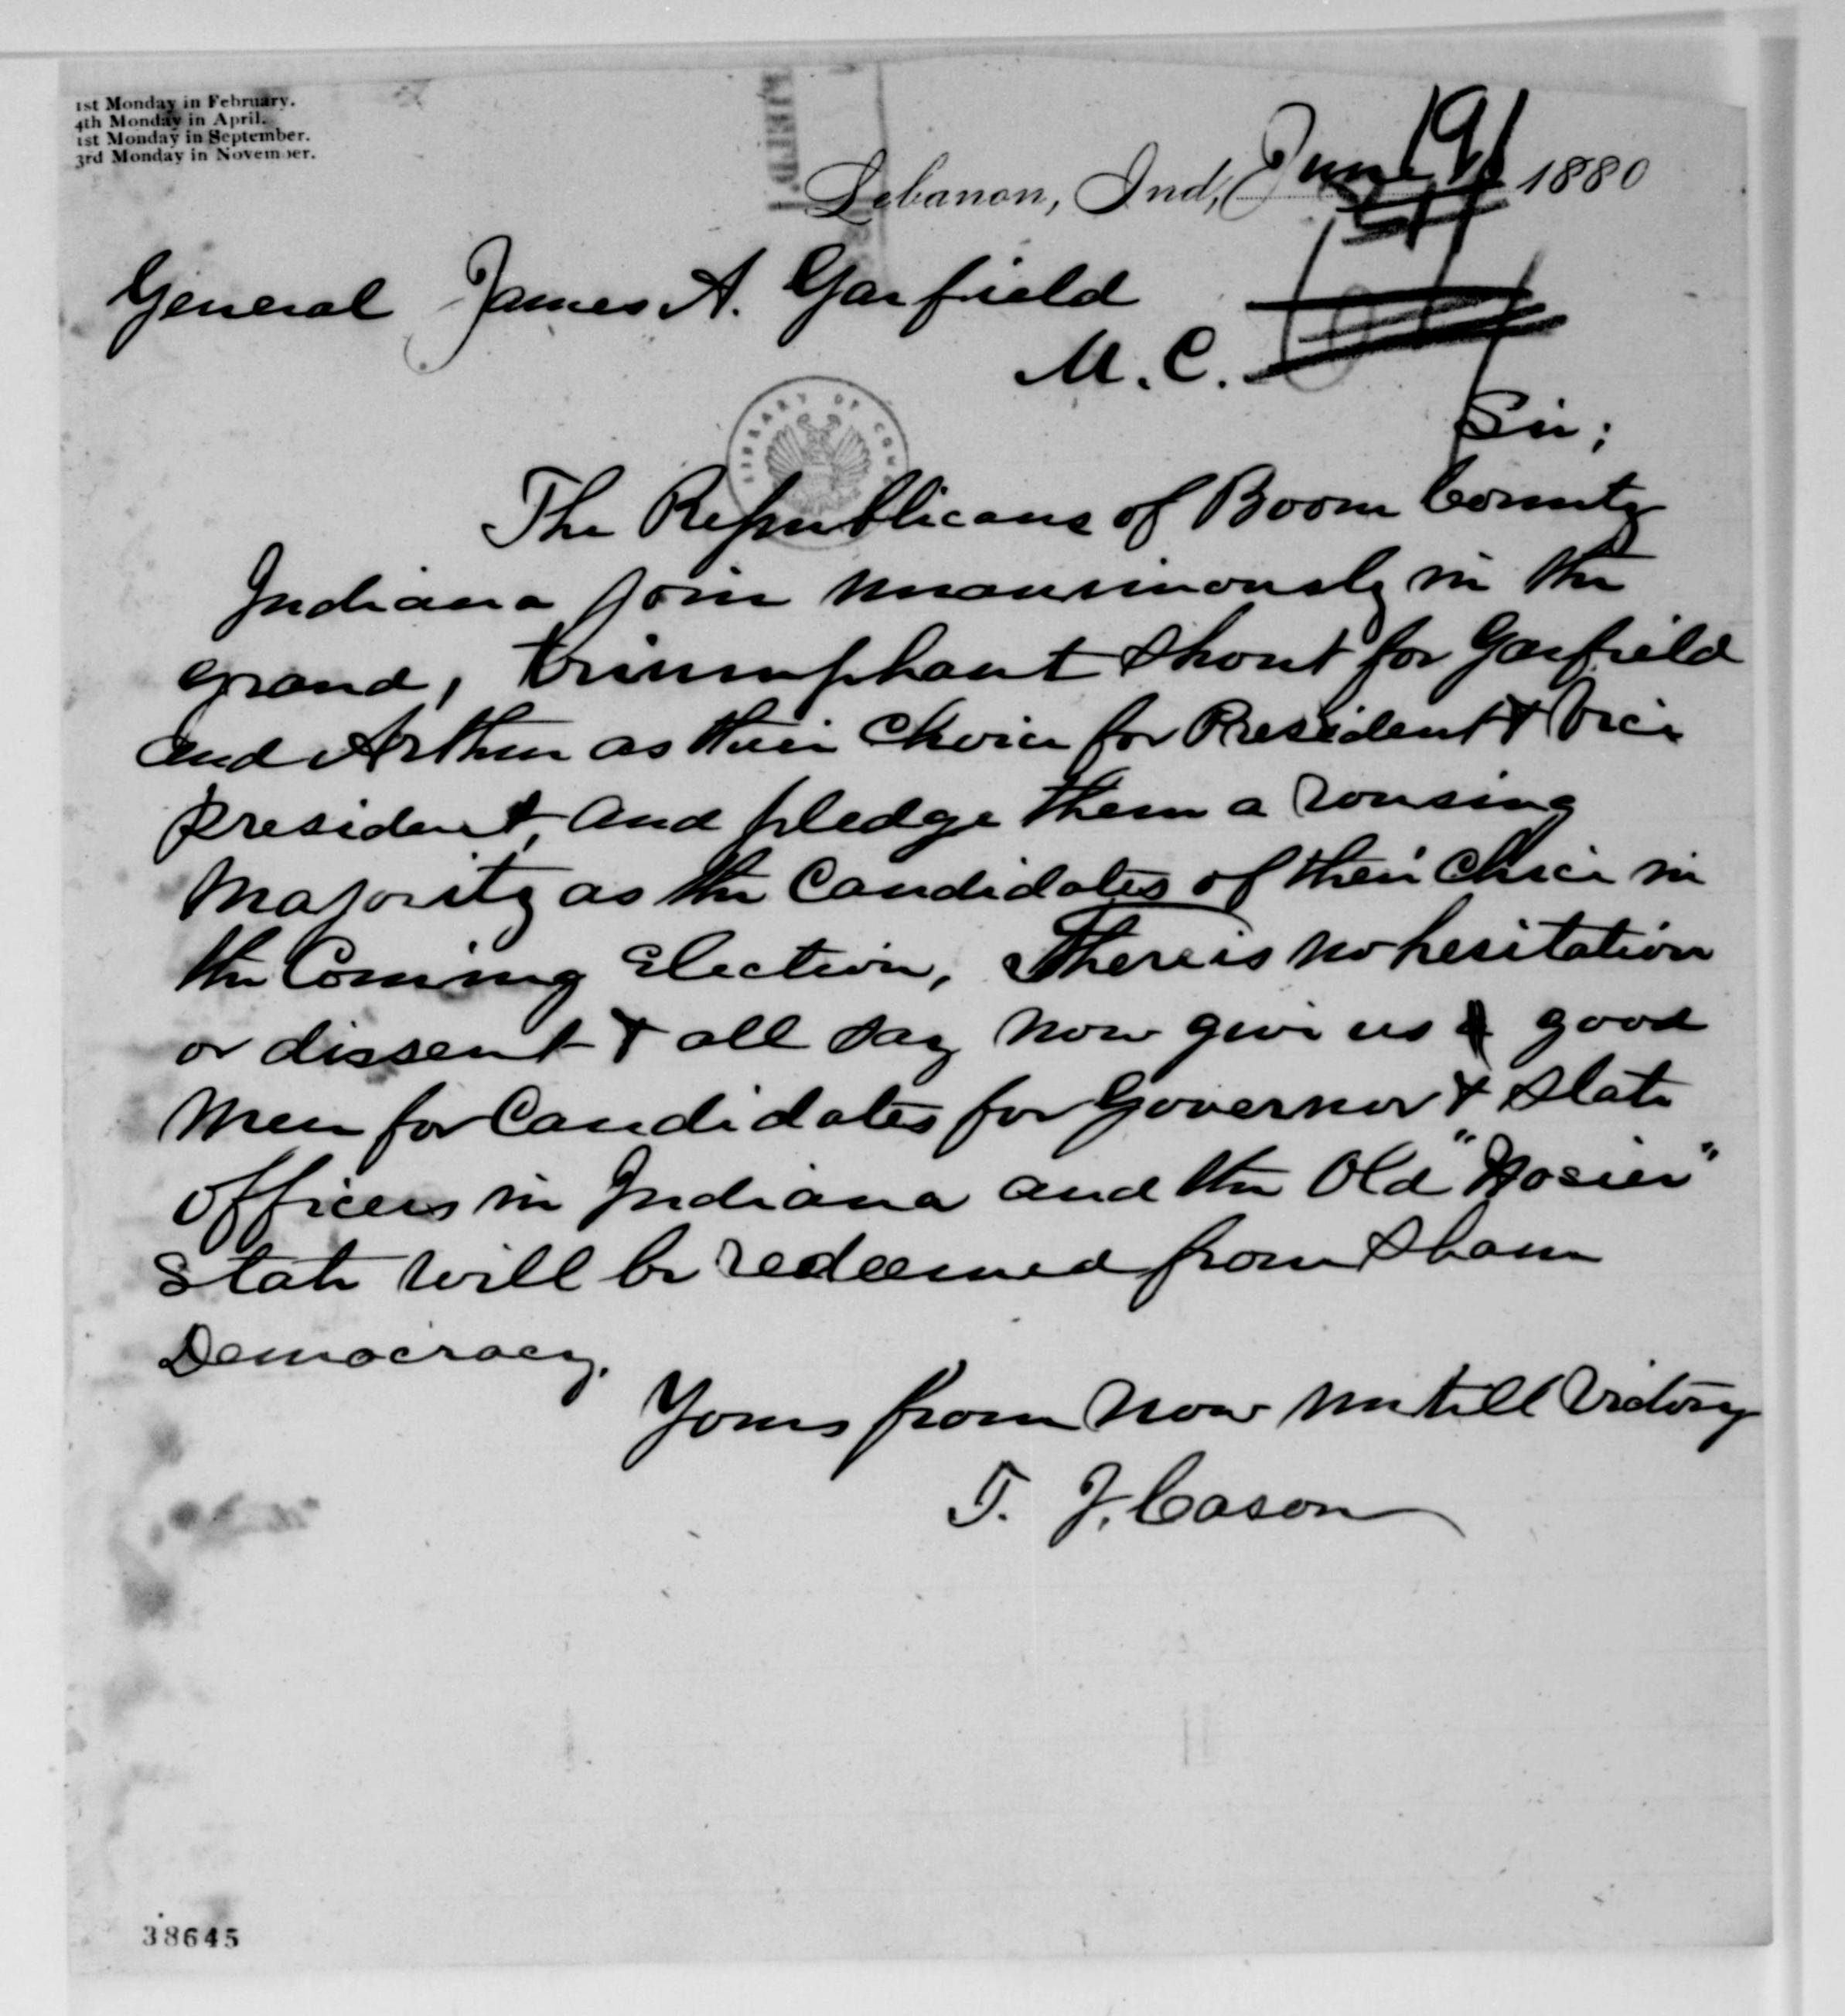 1st Monday in February.
4th Monday in April.
1st Monday in September.
3rd Monday in November.
Lebanon, Ind, June 1880
General James A. Garfield
M. C.
Sir;
The Republicans of Boone County
Indiana join unanimously in the
grand, triumphant shout for Garfield
and Arthur as their choice for President & Vice
president, and pledge them a rousing
majority as the Candidates of their choice in
the Coming Election, There is no hesitation
or dissent & all say now give us good
men for Candidates for Governor & State
officers in Indiana and the Old "Hosier"
State will be redeemed from sham
Democracy.
Yours from now untill Victory
T. J. Cason
LIBRARY OF CON
38645